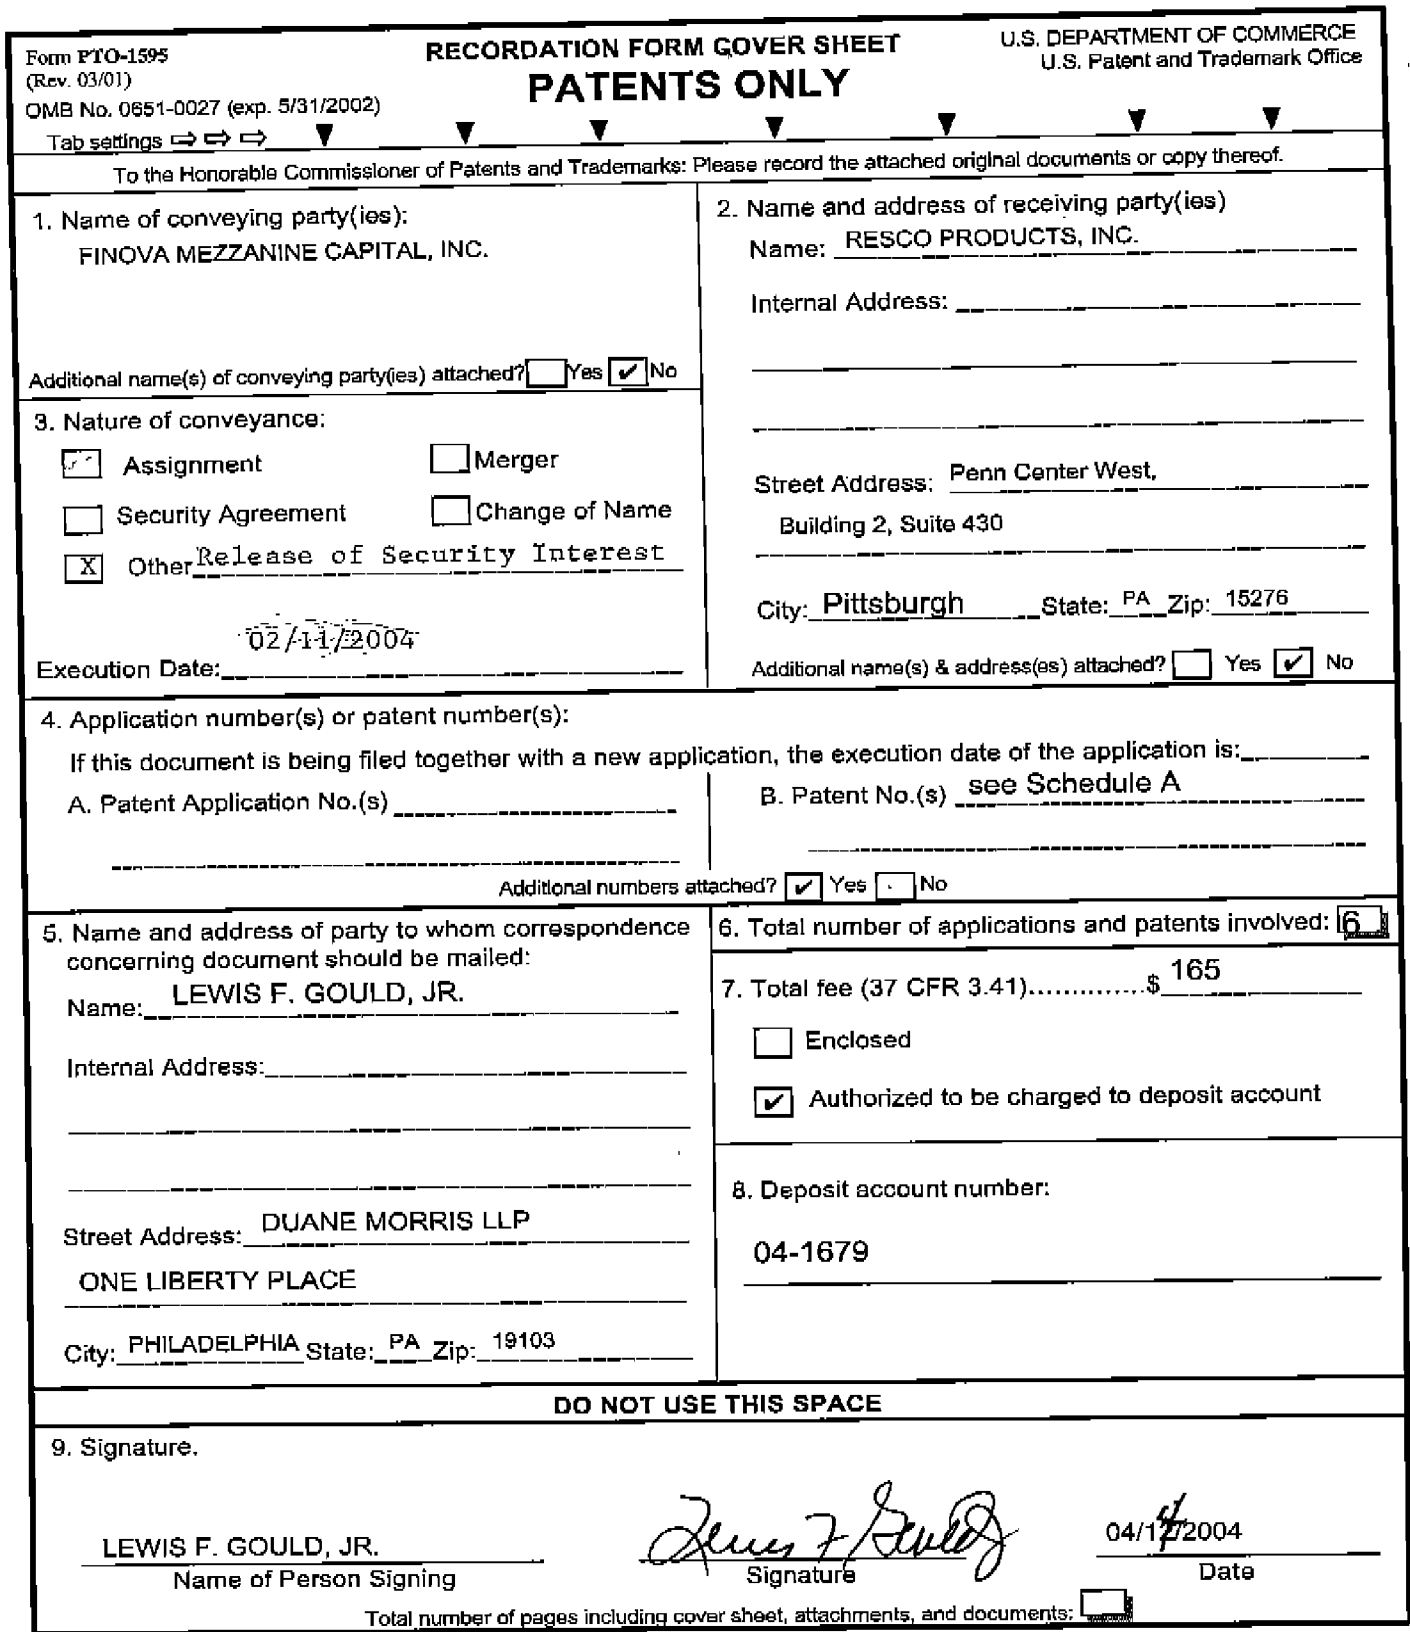 Form PTO-1595
(Rev. 03/01)
OMB No. 0651-0027 (exp. 5/31/2002)
Tab settings ⇨ ⇨ ⇨ ▼ ▼ ▼ ▼ ▼ ▼ ▼
RECORDATION FORM COVER SHEET
PATENTS ONLY
U.S. DEPARTMENT OF COMMERCE
U.S. Patent and Trademark Office
To the Honorable Commissioner of Patents and Trademarks: Please record the attached original documents or copy thereof.
1. Name of conveying party(ies):
FINOVA MEZZANINE CAPITAL, INC.
Additional name(s) of conveying party(ies) attached? Yes ✔ No
2. Name and address of receiving party(ies)
Name: RESCO PRODUCTS, INC.
Internal Address:
Street Address: Penn Center West,
Building 2, Suite 430
City: Pittsburgh State: PA Zip: 15276
Additional name(s) & address(es) attached? Yes ✔ No
3. Nature of conveyance:
Assignment Merger
Security Agreement Change of Name
X Other Release of Security Interest
Execution Date: 02/11/2004
4. Application number(s) or patent number(s):
If this document is being filed together with a new application, the execution date of the application is:
A. Patent Application No.(s)
B. Patent No.(s) see Schedule A
Additional numbers attached? ✔ Yes No
5. Name and address of party to whom correspondence
concerning document should be mailed:
Name: LEWIS F. GOULD, JR.
Internal Address:
Street Address: DUANE MORRIS LLP
ONE LIBERTY PLACE
City: PHILADELPHIA State: PA Zip: 19103
6. Total number of applications and patents involved: 6
7. Total fee (37 CFR 3.41)..............$ 165
Enclosed
✔ Authorized to be charged to deposit account
8. Deposit account number:
04-1679
DO NOT USE THIS SPACE
9. Signature.
LEWIS F. GOULD, JR.
Name of Person Signing
Lewis F Gould Jr
Signature
04/14/2004
Date
Total number of pages including cover sheet, attachments, and documents: